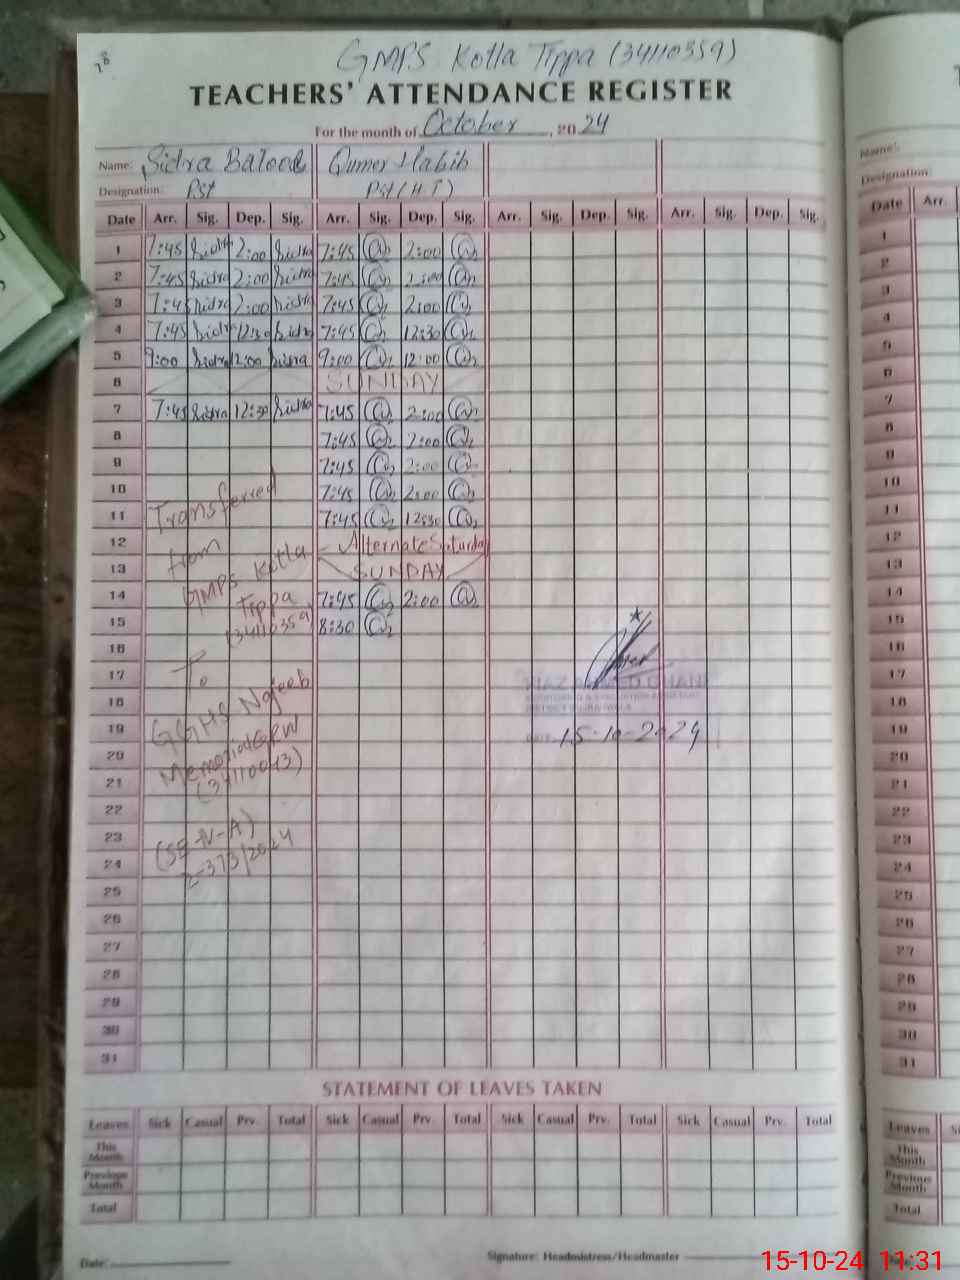 GMPS Kotla Tippa (34110359)
TEACHERS' ATTENDANCE REGISTER
For the month of October, 2024
Name: Sidra Qumer Habib
Designation: PST Pst (H.T)
Date Arr. Sig. Dep. Sig. Arr. Sig. Dep. Sig. Arr. Sig. Dep. Sig. Arr. Sig. Dep. Sig.
1 7:45 Sidra 2:00 Sidra 7:45 2:00
2 7:45 Sidra 2:00 Sidra 7:45 2:00
3 7:45 Sidra 2:00 Sidra 7:45 2:00
4 7:45 Sidra 12:30 Sidra 7:45 12:30
5 9:00 Sidra 12:00 Sidra 9:00 12:00
6 SUNDAY
7 7:45 Sidra 12:30 Sidra 7:45 2:00
8 7:45 2:00
9 7:45 2:00
10 7:45 2:00
11 7:45 12:30
12 Alternate Saturday
13 SUNDAY
14 7:45 2:00
15 8:30
16
17
18
19
20
21
22
23
24
25
26
27
28
29
30
31
Transferred
from
GMPS Kotla
Tippa
(34110359)
To
GGHS Najeeb
Memorial GRW
(34110043)
15-10-2024
STATEMENT OF LEAVES TAKEN
Leaves Sick Casual Prv. Total Sick Casual Prv. Total Sick Casual Prv. Total Sick Casual Prv. Total
This Month
Previous Month
Total
Date:
Signature: Headmistress/Headmaster
Name:
Designation:
Date Arr.
1
2
3
4
5
6
7
8
9
10
11
12
13
14
15
16
17
18
19
20
21
22
23
24
25
26
27
28
29
30
31
Leaves
This Month
Previous Month
Total
15-10-24 11:31